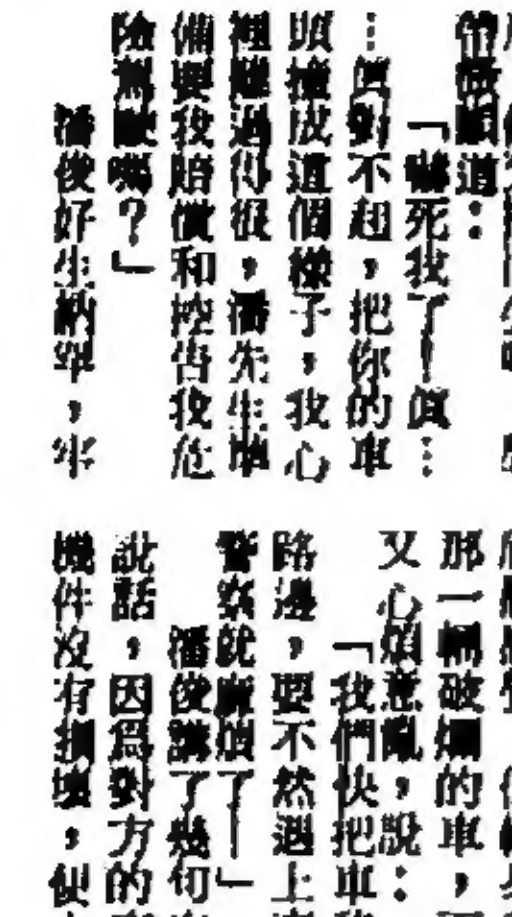 道：
「嚇死我了！真…
…真對不起，把你的車
頭撞成這個樣子，我心
裡難過得很，潘先生準
備要我賠償和控告我危
險駕駛嗎？」
潘俊好生納罕，
那一輛破爛的車，
又心煩意亂，說：
「我們快把車
路邊，要不然遇上
警察就麻煩了！」
潘俊講了幾句
說話，因為對方的
機件沒有損壞，便